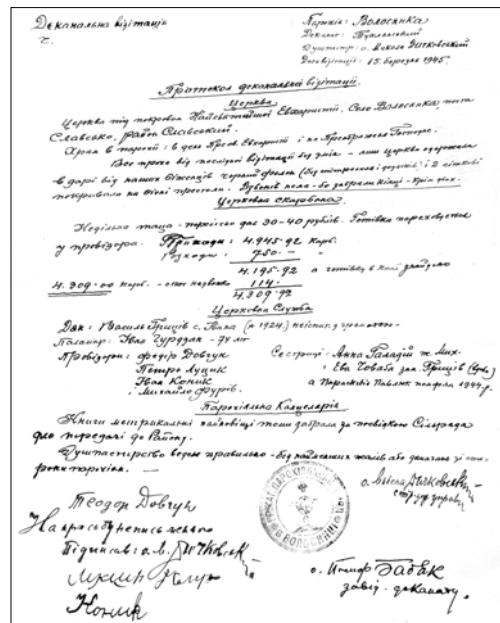 Деканальна візітація
Ч.
Парохія: Волосянка
Деканат: Тухлянський
Душпастир: о. Микола Дичковський
Дня візитації: 15. березня 1945
Протокол деканальної візітації.
Церква
Церква під покровом Найсвятішої Евхаристії. Село Волосянка, пошта
Славсько, район Славський.
Храм в парохії: в день Пресв. Евхаристії і на Преображення Господнє.
Все проче від послідної візітації без змін – лиш церква одержала
в дарі від наших біженців чорний фелон і 2
покривала на бічні престоли. Дзвонів нема – бо забрали німці –
Церковна скарбона.
Недільна таца – пересічно дає 30-40 рублів. Готівка переховується
у провізора. Приходи: 4.945.92 карб.
Розходи: 750. –
4.195.92 а готівки в касі знайдено
4.309.00 карб. – отже надвижка 114. –
4.309.92
Церковна Служба
Дяк: Василь Гриців с. Івана (* 1924.)
Паламар: Іван Гурдзан – 74 літ
Провізори: Федір Довгун
Петро Луцик
Іван Коник
Михайло Фурів.
Сестриці: Анна Галадій ж. Мих.
Ева Човаба зам. Гриців
а Параскевія Павлюк померла 1944 р.
Парохіяльна Канцелярія
Книги метрикальні найновіші томи забрала за посвідкою Сільрада
для передачі до Району.
Душпастирство ведене правильно – без найменших жалів або доказань зі сто-
рони парохіян. –
о. Микола Дичковський
Теодор Довгун
На просьбу неписьменного
Підписав: о. М. Дичковськ
Коник
о. Йосиф Бабяк
завід. деканату.